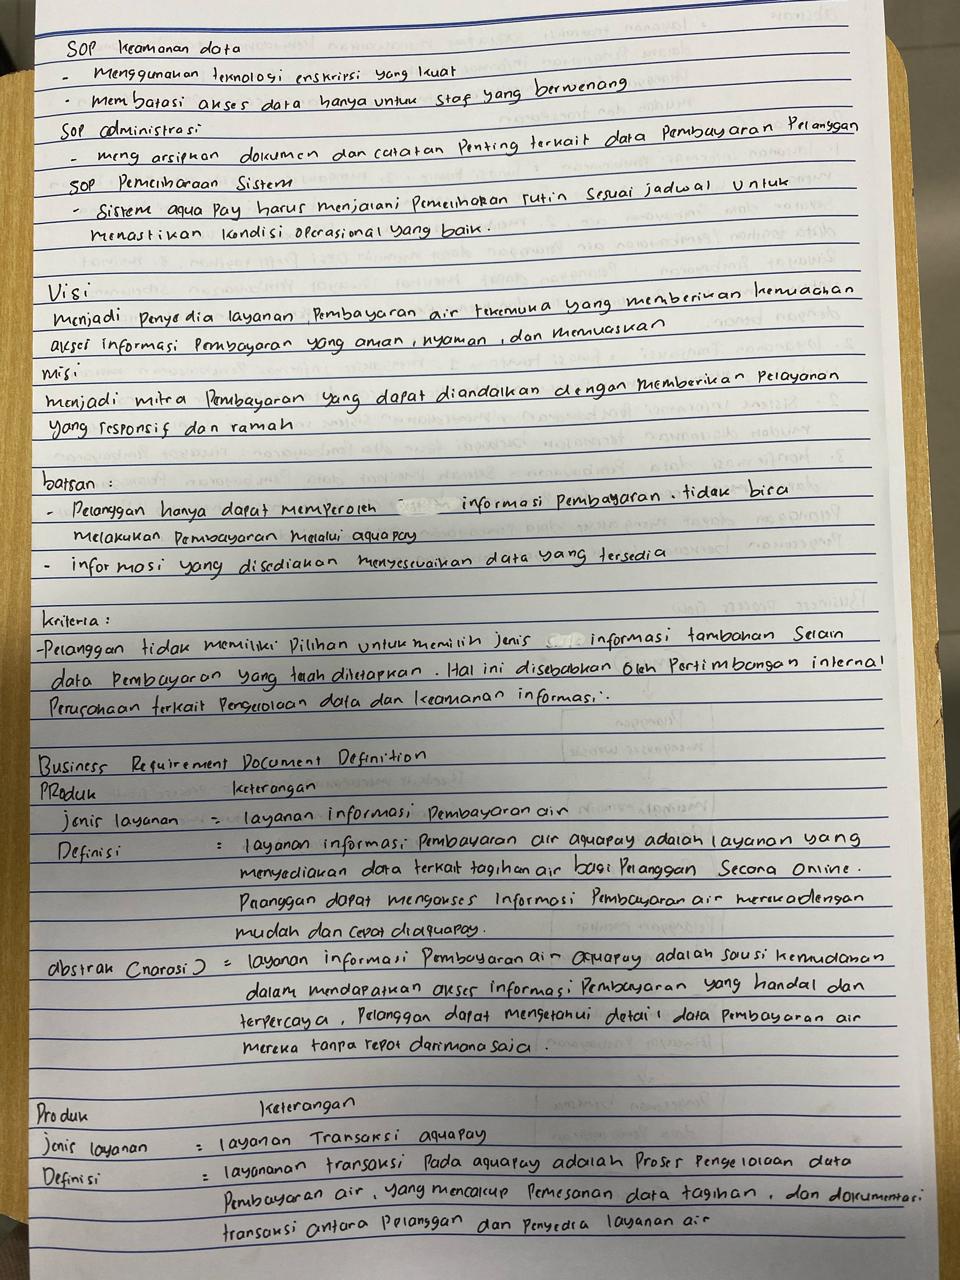 SOP keamanan data
- Menggunakan teknologi enskripsi yang kuat
- membatasi akses data hanya untuk staf yang berwenang
SOP administrasi
- meng arsipkan dokumen dan catatan Penting terkait data Pembayaran Pelanggan
SOP Pemeliharaan Sistem
- Sistem aqua Pay harus menjalani Pemeliharan rutin sesuai jadwal untuk
menastikan kondisi operasional yang baik.
Visi
Menjadi Penyedia layanan Pembayaran air tekemuka yang memberikan kemudahan
akses informasi Pembayaran yang aman, nyaman, dan memuaskan
misi
menjadi mitra Pembayaran yang dapat diandalkan dengan memberikan Pelayanan
yang responsif dan ramah
batsan :
- Pelanggan hanya dapat memperoleh informasi pembayaran. tidak bisa
melakukan Pembayaran melalui aquapay
- informasi yang disediakan menyesuaikan data yang tersedia
kriteria :
-Pelanggan tidak memiliki Pilihan untuk memilih jenis informasi tambahan Selain
data Pembayaran yang telah ditetapkan. Hal ini disebabkan oleh Pertimbangan internal
Perusahaan terkait Pengelolaan data dan keamanan informasi.
Business Requirement Document Definition
PRoduk keterangan
jenis layanan = layanan informasi Pembayaran air
Definisi : layanan informasi Pembayaran air aquapay adalah layanan yang
menyediakan data terkait tagihan air bagi Pelanggan Secara Online.
Planggan dapat mengakses Informasi Pembayaran air mereka dengan
mudah dan cepat diaquapay.
abstrak (narasi) = layanan informasi Pembayaran air aquapay adalah solusi kemudahan
dalam mendapatkan akses informasi Pembayaran yang handal dan
terpercaya, Pelanggan dapat mengetahui detail data pembayaran air
mereka tanpa repot darimana saja.
Produk keterangan
jenis layanan = layanan Transaksi aquapay
Definisi = layananan transaksi Pada aquapay adalah Proses Pengelolaan data
Pembayaran air, yang mencakup Pemesanan data tagihan, dan dokumentasi
transaksi antara Pelanggan dan Penyedia layanan air